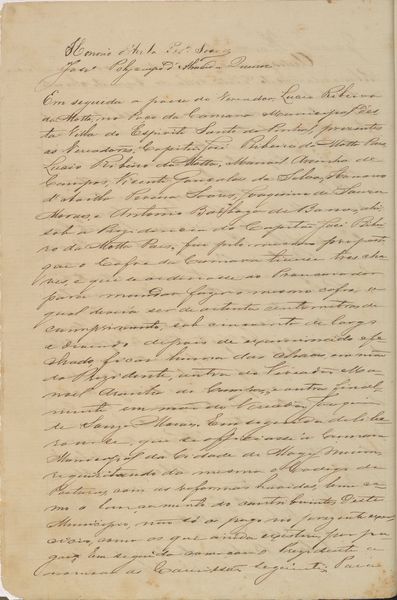 Honorio d'Avila
José Polycarpo d'
Em seguida a posse do Vereador Lucio Ribeiro
da Motta, no Paço da Camara Municipal des-
ta Villa do Espirito Santo do Pinhal, presentes
os Vereadores, Capitão José Ribeiro da Motta Paes,
Lucio Ribeiro da Motta, Manoel Aranha de
Campos, Vicente Gonçalves da Silva, Mariano
Pereira Soares, Joaquim de Souza
Moraes, e Antonio de Barros, ahi
sob a Presidencia do Capitão José Ribei-
ro da Motta Paes, foi pelo mesmo proposto
que o Cofre da Camara tivesse tres cha-
ves, e que se ordenasse ao Procurador
para mandar fazer o mesmo cofre, o
qual devia ser de oitenta centimetros de
cumprimento, sob cincoenta de largo
e depois de fe-
chado, ficar huma das chaves em mão
do Prezidente, outra do Vereador Ma-
noel Aranha de Campos, e outra final-
mente em mão do Vereador Joaquim
de Souza Moraes. Em seguida delibe-
rou-se, que se officiasse a Camara
Municipal da Cidade de Mogy Mirim
requisitando da mesma o Codigo de
Posturas, com as reformas havidas, bem co-
mo o lançamento do contribuintes deste
Municipio, não só os pagos no prezente exer-
cicio, como os que ainda existem por pa-
gar. Em seguida o Prezidente a
nomear as Commissões seguintes: Para